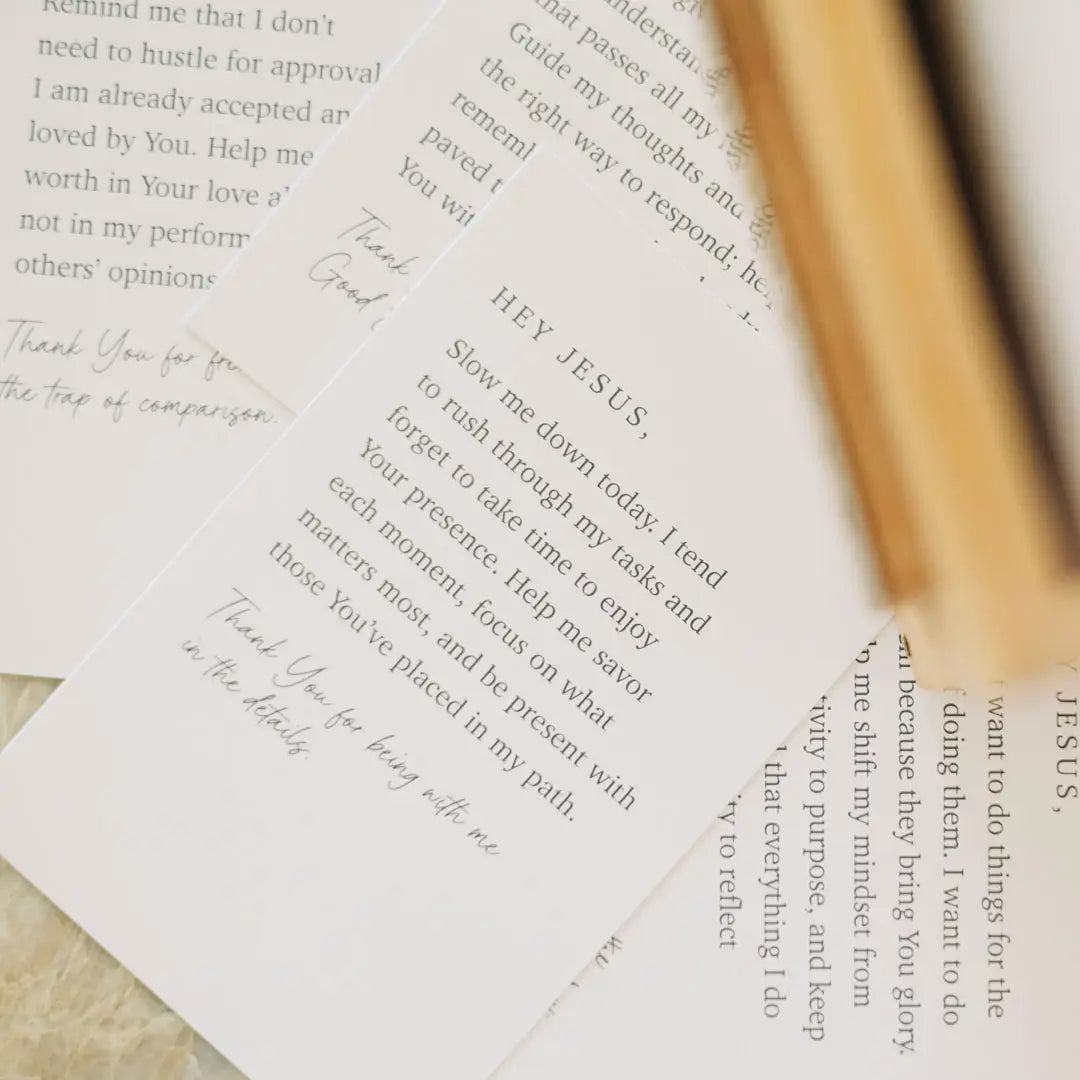 Remind me that I don't
need to hustle for approval
I am already accepted
loved by You. Help me
worth in Your love
not in my
others' opinions
Thank You for
the trap of comparison.
that passes all my
Guide my thoughts and
the right way to respond;
You
Thank
Good
HEY JESUS,
Slow me down today. I tend
to rush through my tasks and
forget to take time to enjoy
Your presence. Help me savor
each moment, focus on what
matters most, and be present with
those You've placed in my path.
Thank You for being with me
in the details.
JESUS,
want to do things for the
doing them. I want to do
because they bring You glory.
me shift my mindset from
to purpose, and keep
that everything I do
to reflect